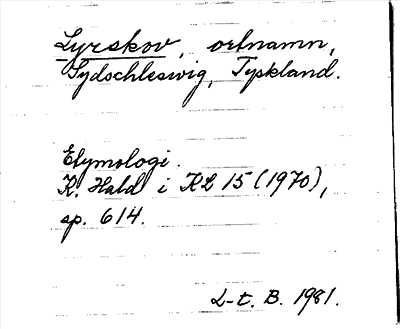 Lyrskov, ortnamn,
Sydschleswig, Tyskland.
Etymologi.
K. Hald i KL 15 (1970),
sp. 614.
L-t. B. 1981.